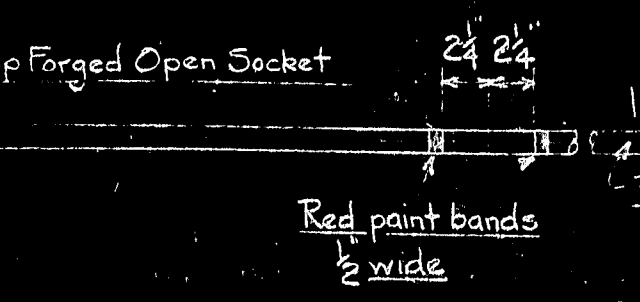 p Forged Open Socket
2 1/4" 2 1/4"
Red paint bands
1/2" wide